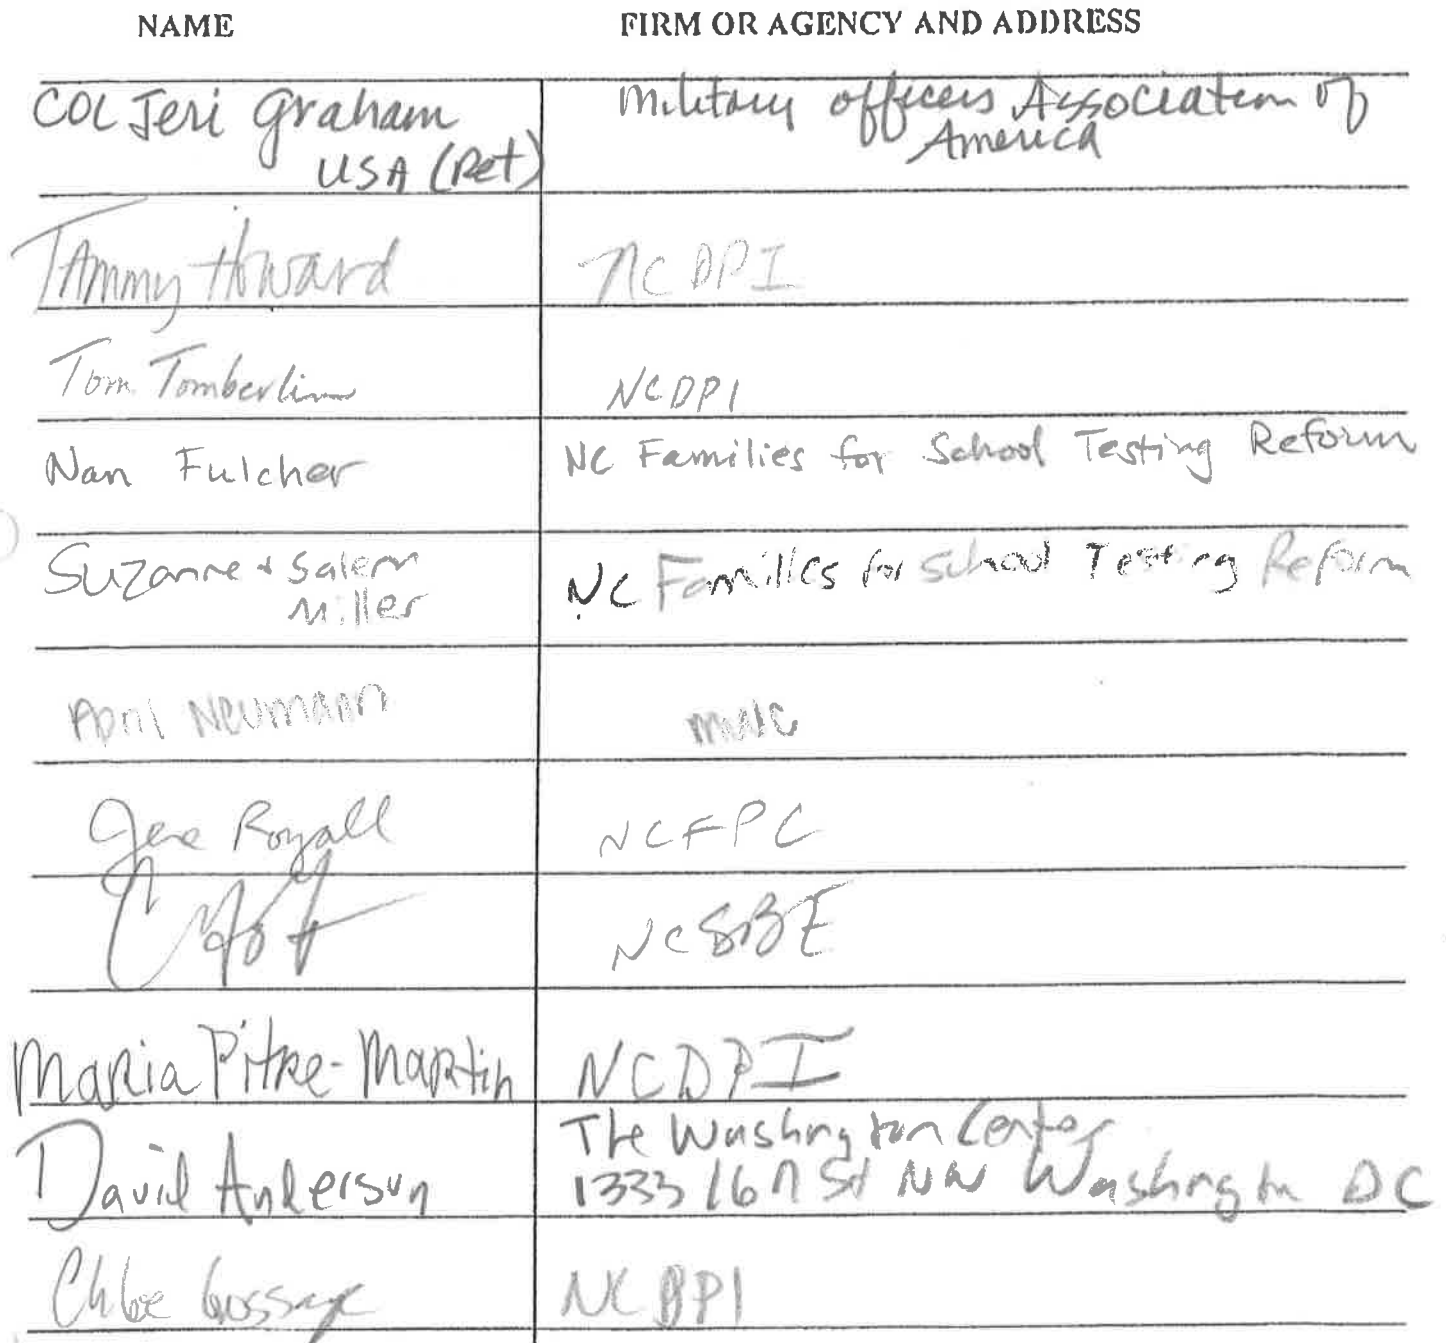 NAME FIRM OR AGENCY AND ADDRESS
COL Jeri Graham Military Officers Association of
USA (Ret) America
Tammy Howard NCDPI
Tom Tomberlin NCDPI
Nan Fulcher NC Families for School Testing Reform
Suzanne + Salem NC Families for School Testing Reform
Miller
April Neumann
Royall NCFPC
NCSBE
Maria Pitre-Martin NCDPI
The Washington Center
David Anderson 1333 16th St NW Washington DC
Chloe Gossage NCDPI